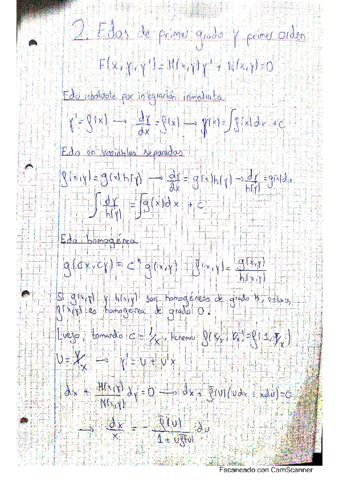 2. Edos de primer grado y primer orden
F(x, y, y') = M(x,y)y' + N(x,y)=0
Edo resoluble por integración inmediata
y' = f(x) → dy/dx = f(x) → y(x) = ∫f(x)dx + c
Edo en variables separadas
f(x,y) = g(x)h(y) → dy/dx = g(x)h(y) → dy/h(y) = g(x)dx
∫dy/h(y) = ∫g(x)dx + c
Edo homogénea
g(cx, cy) = c^k g(x,y) f(x,y) = g(x,y)/h(x,y)
Si g(x,y) y h(x,y) son homogéneas de grado k, entonces
f(x,y) es homogénea de grado 0.
Luego, tomando c = 1/x, tenemos f(x/x, y/x) = f(1, y/x)
U = y/x → y' = U + U'x
dx + M(x,y)/N(x,y) dy = 0 → dx + f(U)(Udx + xdU) = 0
→ dx/x = - f(U)/1 + Uf(U) dU
Escaneado con CamScanner